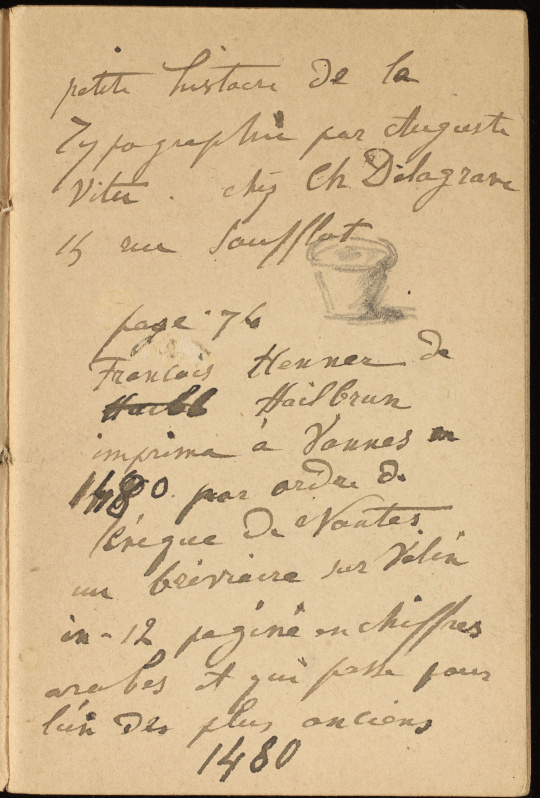 petite histoire de la
Typographie par Auguste
Vitu. chez Ch Delagrave
15 rue Soufflot
page 76
François Henner de
Hailbrun
imprima à Vannes en
1480 par ordre de
l'évêque de Nantes
un bréviaire sur Vélin
in-12 paginé en chiffres
arabes et qui passe pour
l'un des plus anciens
1480